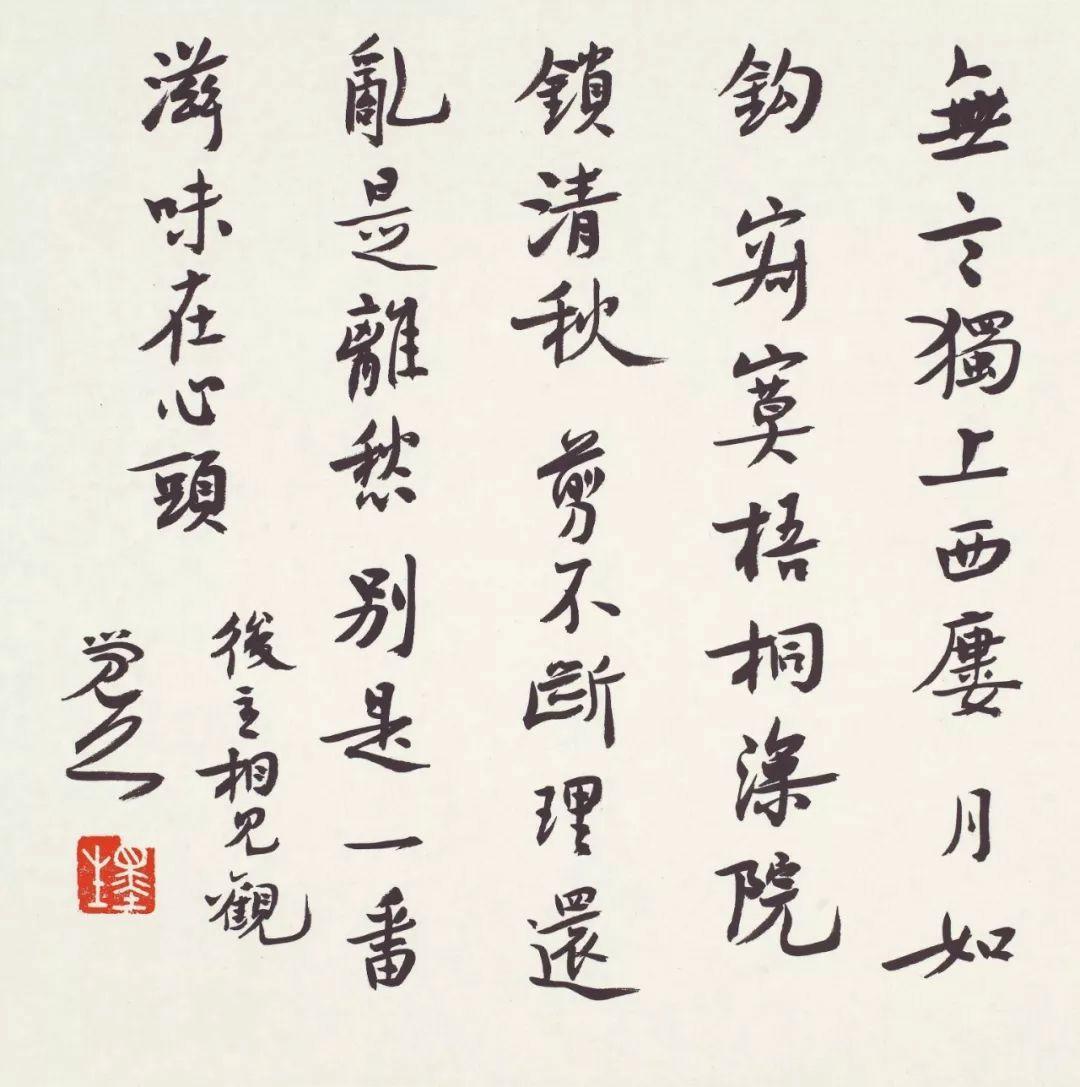 無言獨上西廔 月如
鈎 寂寞梧桐深院
鎖清秋 剪不斷理還
亂是離愁 别是一番
滋味在心頭
後主相見觀